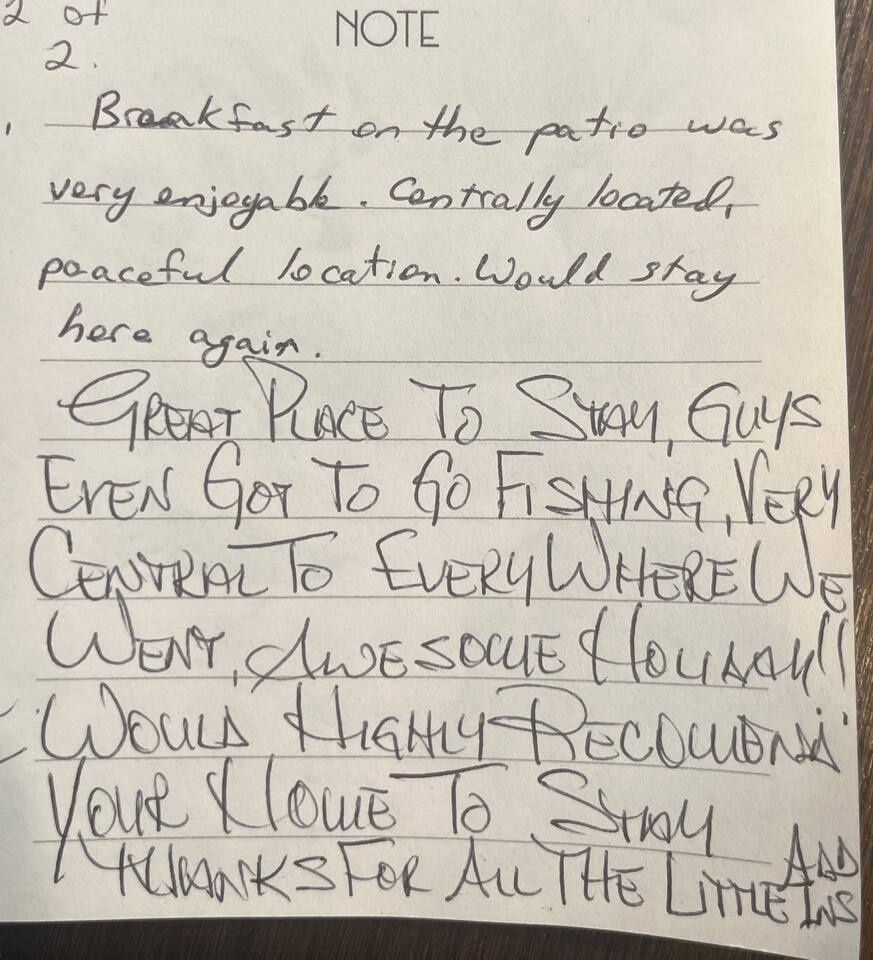 2 of
2.
NOTE
Breakfast on the patio was
very enjoyable. Centrally located,
peaceful location. Would stay
here again.
GREAT PLACE TO STAY, GUYS
EVEN GOT TO GO FISHING, VERY
CENTRAL TO EVERYWHERE WE
WENT, AWESOME HOLIDAY!!
WOULD HIGHLY RECOMEND
YOUR HOME TO STAY
THANKS FOR ALL THE LITTLE ADD
INS